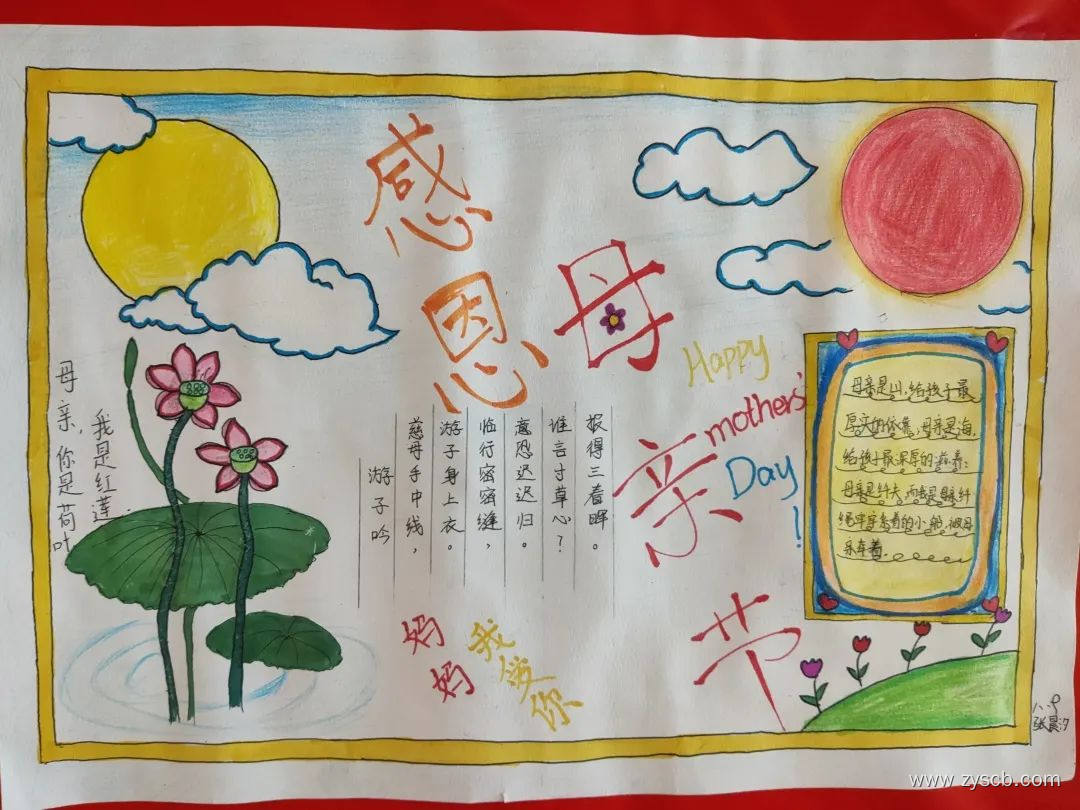 感恩
母亲节
Happy
mothers'
Day!
母亲,你是荷叶
我是红莲
游子吟
慈母手中线,
游子身上衣。
临行密密缝,
意恐迟迟归。
谁言寸草心?
报得三春晖。
妈妈
我爱你
母亲是山,给孩子最
厚实的依靠,母亲是海,
给孩子最深厚的
母亲是纤夫,而我是
绳牢牢系着的小船,被母
亲牵着.
八.9
www.zyscb.com